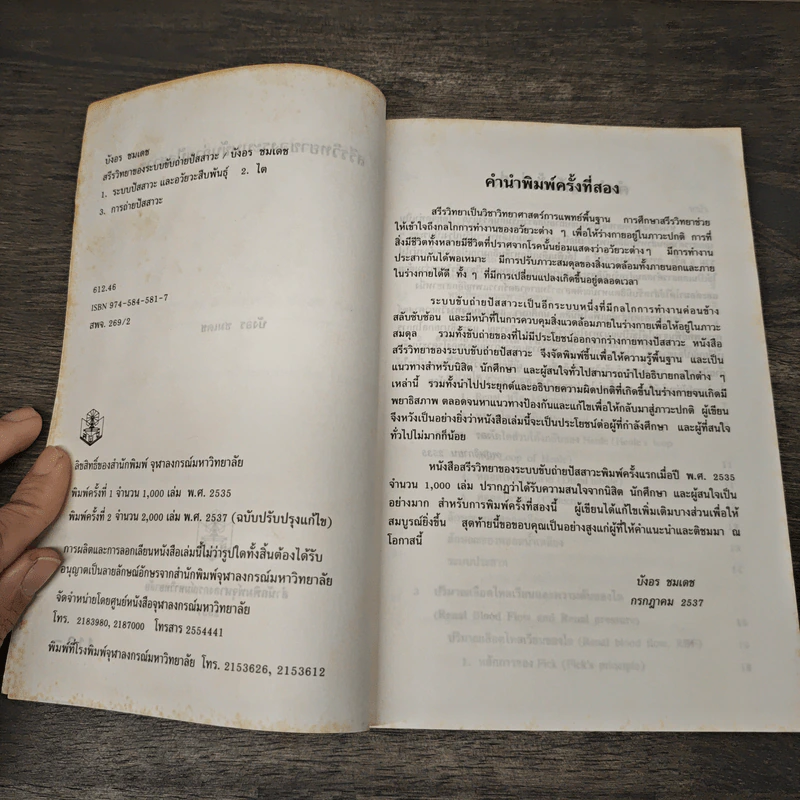 บังอร ชมเดช
สรีรวิทยาของระบบขับถ่ายปัสสาวะ / บังอร ชมเดช
1. ระบบปัสสาวะ และอวัยวะสืบพันธุ์ 2. ไต
3. การถ่ายปัสสาวะ
612.46
ISBN 974-584-581-7
สพจ. 269/2
ลิขสิทธิ์ของสำนักพิมพ์ จุฬาลงกรณ์มหาวิทยาลัย
พิมพ์ครั้งที่ 1 จำนวน 1,000 เล่ม พ.ศ. 2535
พิมพ์ครั้งที่ 2 จำนวน 2,000 เล่ม พ.ศ. 2537 (ฉบับปรับปรุงแก้ไข)
การผลิตและการลอกเลียนหนังสือเล่มนี้ไม่ว่ารูปใดทั้งสิ้นต้องได้รับ
อนุญาตเป็นลายลักษณ์อักษรจากสำนักพิมพ์จุฬาลงกรณ์มหาวิทยาลัย
จัดจำหน่ายโดยศูนย์หนังสือจุฬาลงกรณ์มหาวิทยาลัย
โทร. 2183980, 2187000 โทรสาร 2554441
พิมพ์ที่โรงพิมพ์จุฬาลงกรณ์มหาวิทยาลัย โทร. 2153626, 2153612
คำนำพิมพ์ครั้งที่สอง
สรีรวิทยาเป็นวิชาวิทยาศาสตร์การแพทย์พื้นฐาน การศึกษาสรีรวิทยาช่วย
ให้เข้าใจถึงกลไกการทำงานของอวัยวะต่าง ๆ เพื่อให้ร่างกายอยู่ในภาวะปกติ การที่
สิ่งมีชีวิตทั้งหลายมีชีวิตที่ปราศจากโรคนั้นย่อมแสดงว่าอวัยวะต่างๆ มีการทำงาน
ประสานกันได้พอเหมาะ มีการปรับภาวะสมดุลของสิ่งแวดล้อมทั้งภายนอกและภาย
ในร่างกายได้ดี ทั้ง ๆ ที่มีการเปลี่ยนแปลงเกิดขึ้นอยู่ตลอดเวลา
ระบบขับถ่ายปัสสาวะเป็นอีกระบบหนึ่งที่มีกลไกการทำงานค่อนข้าง
สลับซับซ้อน และมีหน้าที่ในการควบคุมสิ่งแวดล้อมภายในร่างกายเพื่อให้อยู่ในภาวะ
สมดุล รวมทั้งขับถ่ายของที่ไม่มีประโยชน์ออกจากร่างกายทางปัสสาวะ หนังสือ
สรีรวิทยาของระบบขับถ่ายปัสสาวะ จึงจัดพิมพ์ขึ้นเพื่อให้ความรู้พื้นฐาน และเป็น
แนวทางสำหรับนิสิต นักศึกษา และผู้สนใจทั่วไปสามารถนำไปอธิบายกลไกต่าง ๆ
เหล่านี้ รวมทั้งนำไปประยุกต์และอธิบายความผิดปกติที่เกิดขึ้นในร่างกายจนเกิดมี
พยาธิสภาพ ตลอดจนหาแนวทางป้องกันและแก้ไขเพื่อให้กลับมาสู่ภาวะปกติ ผู้เขียน
จึงหวังเป็นอย่างยิ่งว่าหนังสือเล่มนี้จะเป็นประโยชน์ต่อผู้ที่กำลังศึกษา และผู้ที่สนใจ
ทั่วไปไม่มากก็น้อย
หนังสือสรีรวิทยาของระบบขับถ่ายปัสสาวะพิมพ์ครั้งแรกเมื่อปี พ.ศ. 2535
จำนวน 1,000 เล่ม ปรากฏว่าได้รับความสนใจจากนิสิต นักศึกษา และผู้สนใจเป็น
อย่างมาก สำหรับการพิมพ์ครั้งที่สองนี้ ผู้เขียนได้แก้ไขเพิ่มเติมบางส่วนเพื่อให้
สมบูรณ์ยิ่งขึ้น สุดท้ายนี้ขอขอบคุณเป็นอย่างสูงแก่ผู้ที่ให้คำแนะนำและติชมมา ณ
โอกาสนี้
บังอร ชมเดช
กรกฎาคม 2537